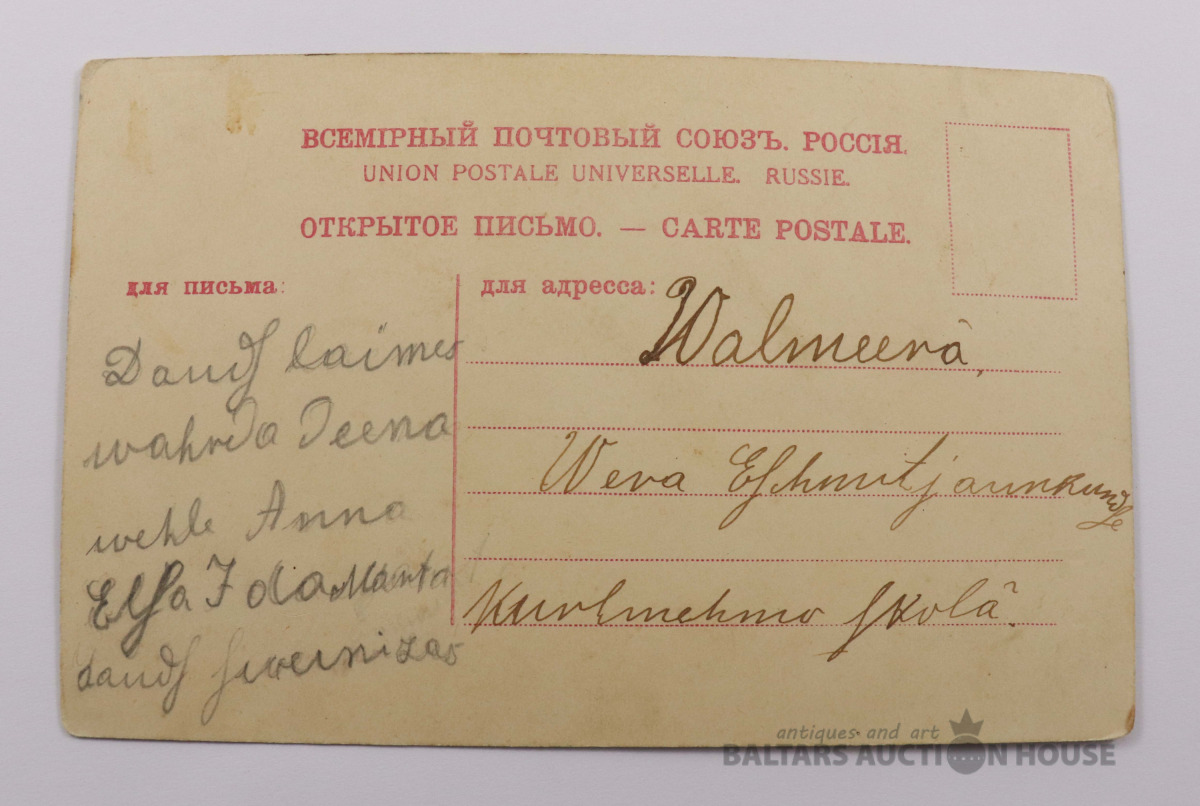 ВСЕМІРНЫЙ ПОЧТОВЫЙ СОЮЗЪ. РОССІЯ.
UNION POSTALE UNIVERSELLE. RUSSIE.
ОТКРЫТОЕ ПИСЬМО. — CARTE POSTALE.
для письма:
Daudſ laimes
wahrda deena
wehle Anna
Elſa Ida Marta
daudſ ſweenizas
для адресса:
Walmeerâ,
Wera Eſchmit jaunkundſe
Kurlmehmo ſkolâ.
antiques and art
BALTARS AUCTION HOUSE